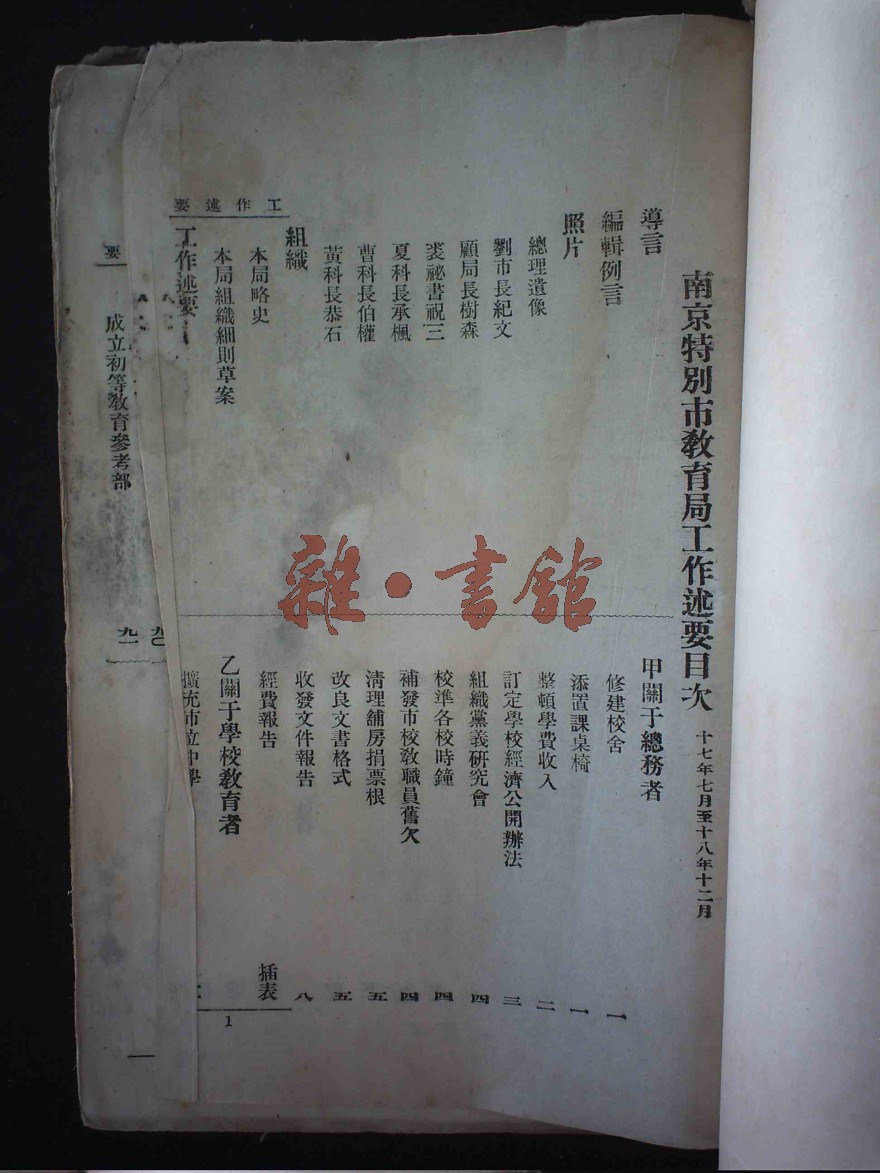 南京特別市敎育局工作述要目次 十七年七月至十八年十二月
導言
編輯例言
照片
總理遺像
劉市長紀文
顧局長樹森
裘祕書祝三
夏科長承楓
曹科長伯權
黃科長恭石
組織
本局略史
本局組織細則草案
工作述要
工作述要
甲關于總務者
修建校舍 一
添置課桌椅 一
整頓學費收入 二
訂定學校經濟公開辦法 三
組織黨義硏究會 四
校準各校時鐘 四
補發市校敎職員舊欠 四
淸理舖房捐票根 五
改良文書格式 五
收發文件報告 八
經費報告 插表
乙關于學校敎育者
擴充市立中學
1
九〇
要
成立初等敎育參考部 九一
一
雜·書館